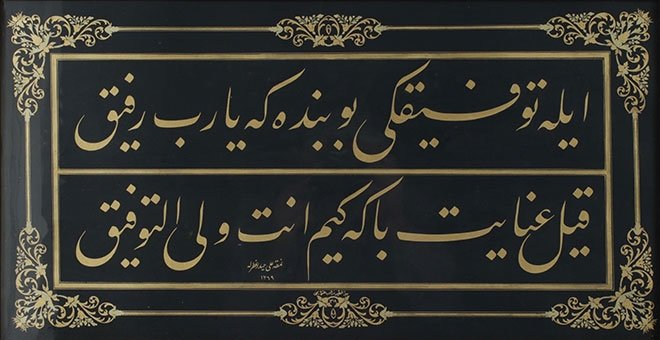 ایله توفیقکی بو بنده که یا رب رفیق
قیل عنایت باکه کیم انت ولی التوفیق
١٣٦٩